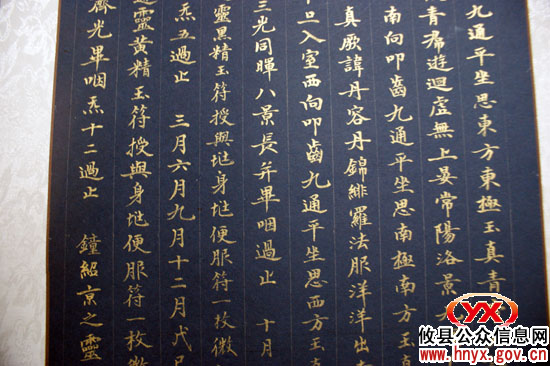 九通平坐思東方東極玉真青
青帝遊迴虛無上晏常陽洛景
南向叩齒九通平坐思南極南方玉
真厥諱丹容丹錦緋羅法服洋洋出
旦入室西向叩齒九通平坐思西方玉
三光同暉八景長并畢咽過止 十月
靈黑精玉符授與地身地便服符一枚微
炁五過止 三月六月九月十二月戊
靈黃精玉符授與身地便服符一枚微
齊光畢咽炁十二過止 鐘紹京之靈
YX
攸县公众信息网
www.hnyx.gov.cn